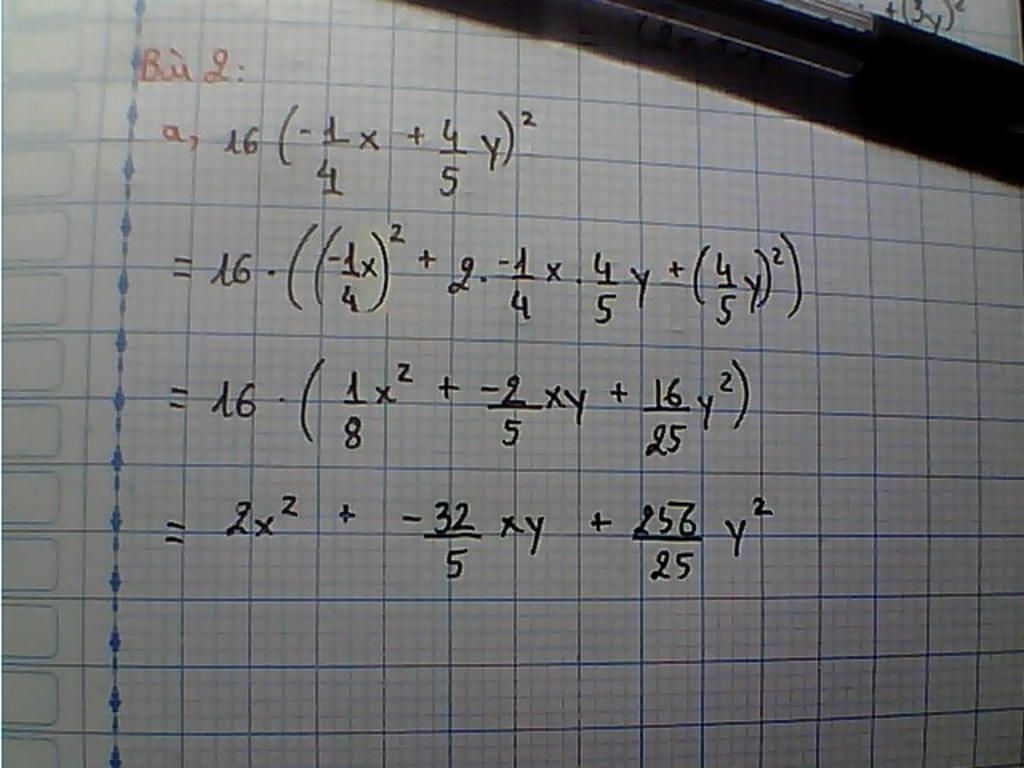 + (3y)²
Bài 2:
a, 16 (-1/4 x + 4/5 y)²
= 16 · ((-1/4 x)² + 2 · -1/4 x · 4/5 y + (4/5 y)²)
= 16 · (1/8 x² + -2/5 xy + 16/25 y²)
= 2x² + -32/5 xy + 256/25 y²